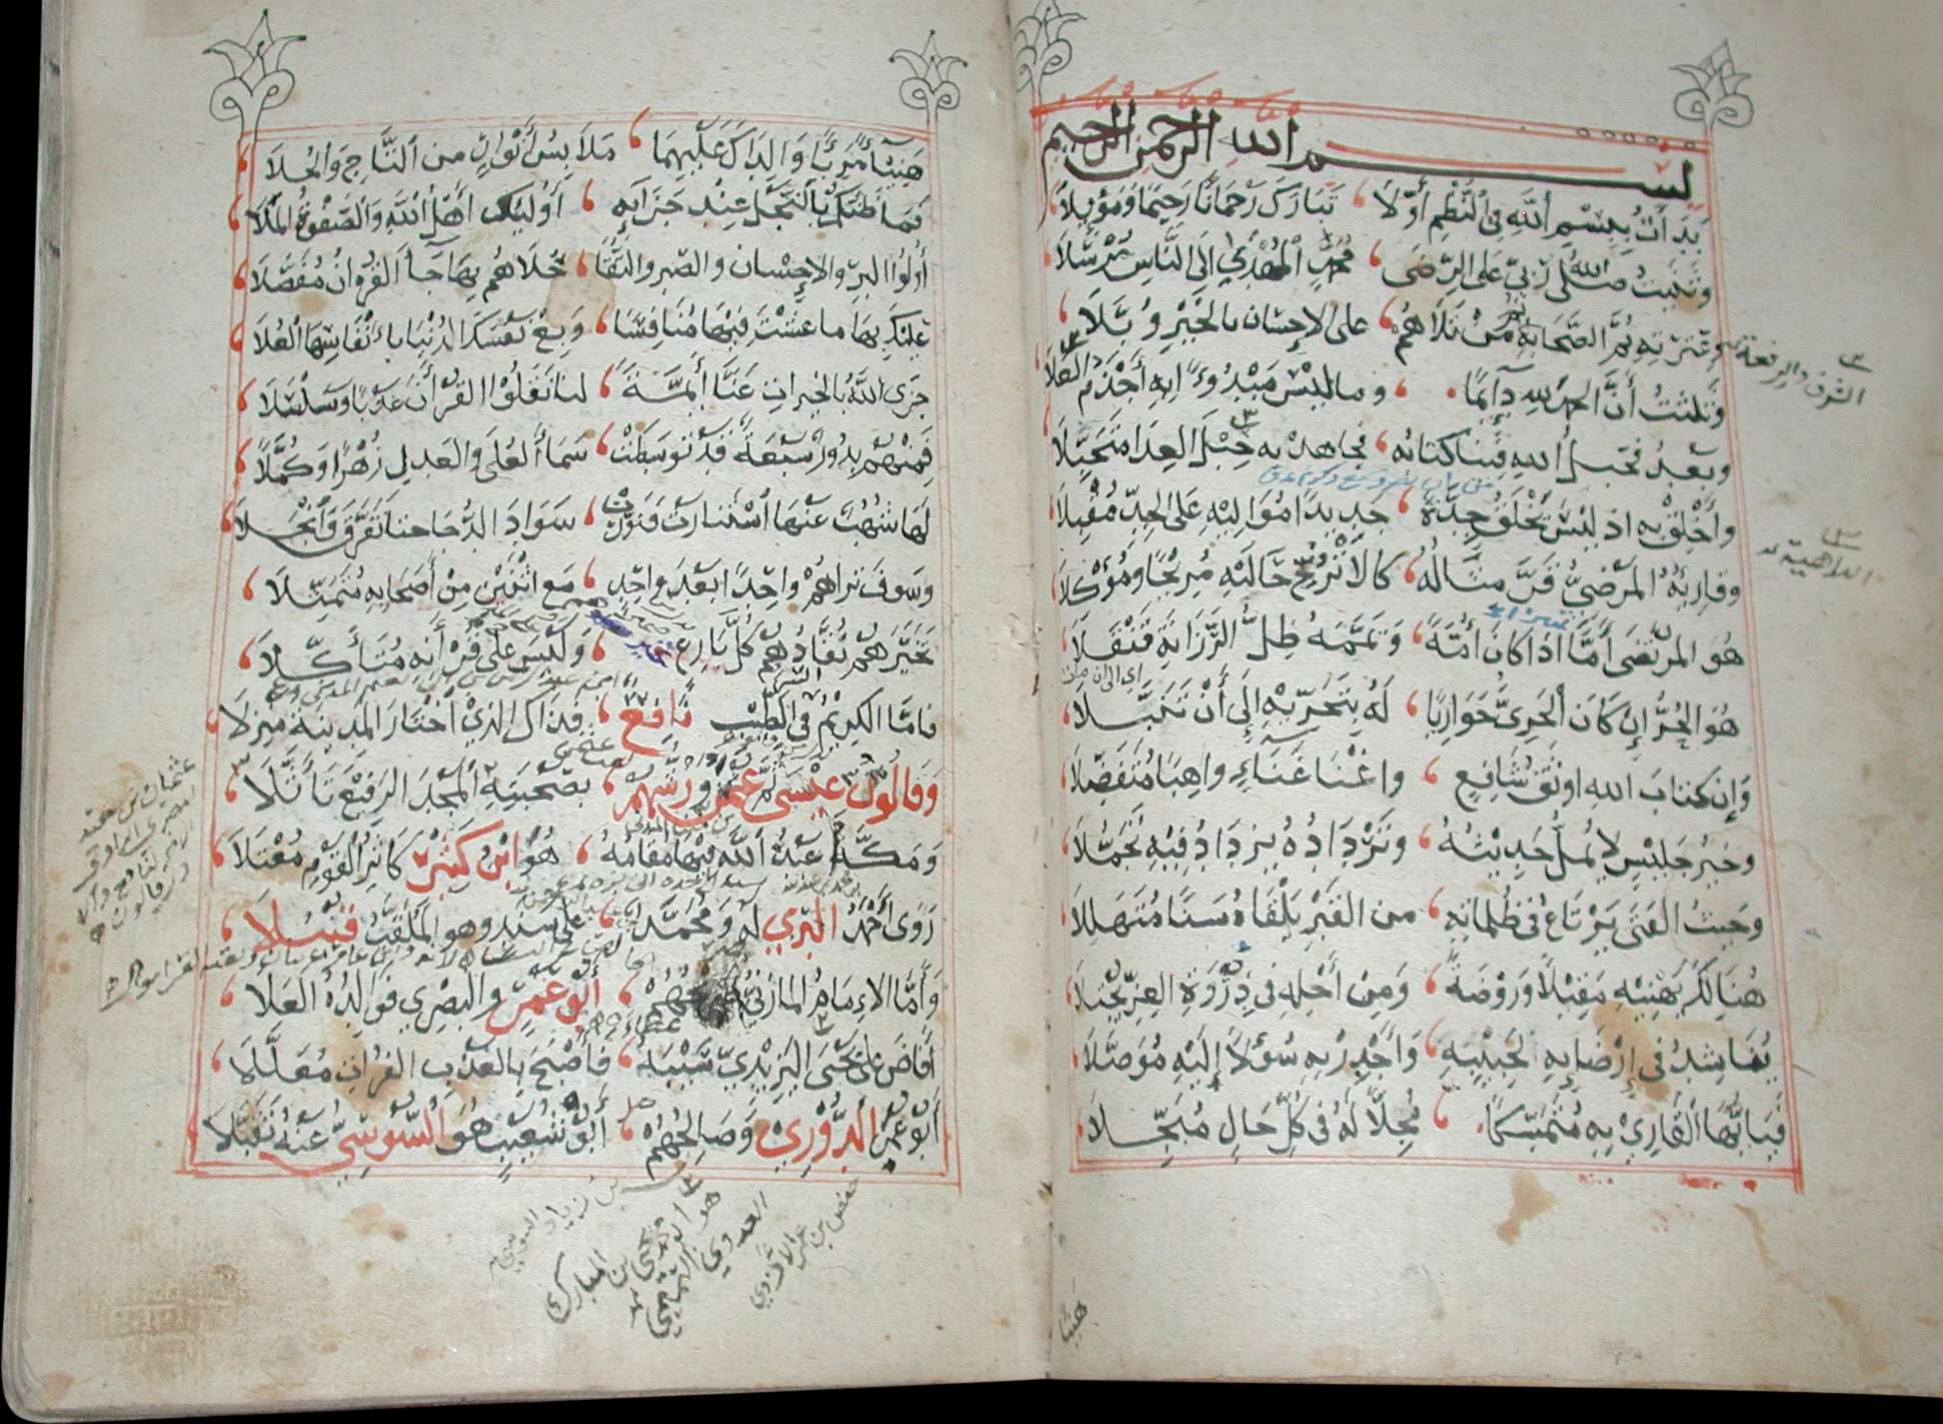 بسم الله الرحمن الرحيم
بَدَأتُ بِبِسْمِ اَللَّهِ فِي اَلنَّظْمِ أَوَّلَا ، تَبَارَكَ رَحْمَانًا رَحِيمًا وَمَوْئِلَا
وَثَنَّيتُ صلى الله رَبِّي عَلَى الرِّضَى ، مُحَمَّدٍ الْمُهْدَي إِلَى النَّاسِ مُرْسَلَا
وعِتْرَتِهِ ثُمَّ الصَّحَابَةِ ثم مَنْ تَلَاهُمْ ، على الإحسان بالخَيْرِ وُبَّلَا
الشرف والرفعة
وَثَلَّثْتُ أَنَّ الحمد لله دآئِمًا ، وما ليْسَ مَبْدُوءًا بِهِ أجْذَمُ العَلَا
وبعدُ فحبلُ الله فِينا كتابُه ، فجاهد به حِبْلَ العِدَا مُتَحَبِّلَا
الداهية
وأَخْلِقْ به اذ لَيْسَ يَخْلَقُ جِدَّةً ، جديدًا مُوَالِيهِ عَلَى الجِدِّ مُقْبِلَا
وقارِئُهُ المَرْضِيُّ قَرَّ مثَالُهُ ، كالأُتْرُجِّ حَالَيْهِ مُرِيْحًا ومُوْكَلَا
هُوَ المرتَضَى أَمًّا اذَا كان أُمَّةً ، وَيَمَّمَهُ ظِلُّ الرَّزَانَةِ قَنْقَلَا
هُوَ الحُرُّ إِن كَانَ الْحَرِيَّ حَوَارِيًا ، لَهُ بِتَحَرِّيْهِ إِلَى أَنْ تَنَبَّلَا
وَإِن كتابَ اللهِ اوثَقُ شَافِعٍ ، واغْنَا غَنَاءٍ واهِبًا مُتَفَضِّلَا
وخيرُ جَليْسٍ لا يُمَلُّ حَدِيْثُهُ ، وتَرْدَادُهُ يزدَادُ فِيْهِ تَجَمُّلَا
وحيثُ الفتَى يَرْتَاعُ فى ظُلماتِه ، من القَبْرِ يَلْقَاهُ سَنًا مُتَهَلِّلَا
هُنَالِكَ يَهْنِيْهِ مَقِيْلًا وَرَوْضَةً ، وَمِن أَجْلِهِ فى ذِرْوَةِ العِزِّ يُجْتَلَا
يُنَاشِدُ فى إِرْضَائِهِ لحَبِيْبِهِ ، وَأَجْدِرْ بِهِ سُؤْلًا إِلَيْهِ مُوَصَّلَا
فَيَا أَيُّهَا القَارِيْ بِهِ مُتَمَسِّكًا ، مُجِلًّا لَهُ فى كُلِّ حَالٍ مُبَجِّلَا
هنيئا
هَنِيْئًا مَّرِيئًا وَالِدَاكَ عَلَيْهِمَا ، مَلَابِسُ أَنْوَارٍ من التَّاجِ وَالحُلَا
فَمَا ظَنُّكُمْ بِالنَّجْلِ عِنْدَ جَزَآئِهِ ، أُوْلَئِكَ أَهْلُ اللَّهِ وَالصَّفْوَةُ المَلَا
أُولُوا البِرِّ والإِحْسان والصَّبر والتُّقَا ، حُلَاهُم بِهَا جَآءَ القُرْءانُ مُفَصَّلَا
عليْكَ بِهَا ما عشْتَ فِيْهَا مُنَافِسًا ، وَبِعْ نَفْسَكَ الدُنْيَا بأَنْفَاسِهَا الْعُلَا
جَزَى اللَّهُ بالخيراتِ عَنَّا أَئِمَّةً ، لنا نَقَلُوْا القُرْآنَ عَذْبًا وسَلْسَلَا
فَمِنْهُم بُدُورٌ سَبْعَةٌ قَد توسَطَتْ ، سَمَآءَ العُلَى والعَدلِ زُهْرًا وَكُمَّلًا
لَهَا شُهُبٌ عَنْهَا اُسْتَنَارت فَنَوَّرَتْ ، سَوَادَ الدُّجَا حتا تَفَرَّقَ وَانْجَلَا
وسَوفَ تراهُمْ واحِدًا بَعْدَ واحِدٍ ، مَع اثْنَيْنِ مِنْ أَصْحَابِهِ مُتَمَثِّلَا
تَخَيَّرَهُم نُقَّادُهُم كُلَّ بَارِعٍ ، وَلَيْسَ على قُرْآنِهِ مُتَأَكِّلَا
فامَّا الكَرِيْمُ فى الطِيْبِ نَافِعٌ ، فذاك الذِيْ اخْتَارَ المَدِينَةَ مَنزِلَا
وَقَالُونُ عِيْسَى ثُمَّ عثمنُ ورشُهُمْ ، بصُحْبَتِهِ المَجْدَ الرَفِيْعَ تَأَثَّلَا
عثمان بن سعيد
وَمَكَّةُ عَبْدُ اللَّه فِيْهَا مَقَامُهُ ، هُوَ ابْنُ كَثِيْرٍ كَاثِرُ القَوْمِ مُعْتَلَا
رَوَى أَحْمَدُ البَزِّي لَهُ وَمُحَمَّدٌ ، على سَندٍ وهو المُلَقَّبُ قُنْبُلَا
وَأَمَّا الإِمَامُ المازنيُّ صريحُهُمْ ، أَبُو عَمْرٍ والبصْرِي فوالِدُهُ العَلَا
أَفَاضَ على يَحْيَى اليَزِيْدِيِّ سَيْبَهُ ، فأَصْبَحَ بالعَذْبِ الفُرَاتِ مُعَلَّلَا
أَبُو عُمَرَ الدُّوْرِيْ وَصَالِحُهُمْ ، أَبُو شُعَيْبٍ هُوَ السُّوسِيُّ عَنْهُ تَقَبَّلَا
حفص بن عمر الازدي
يحيى بن المبارك
العدوي
بن زياد السوسي